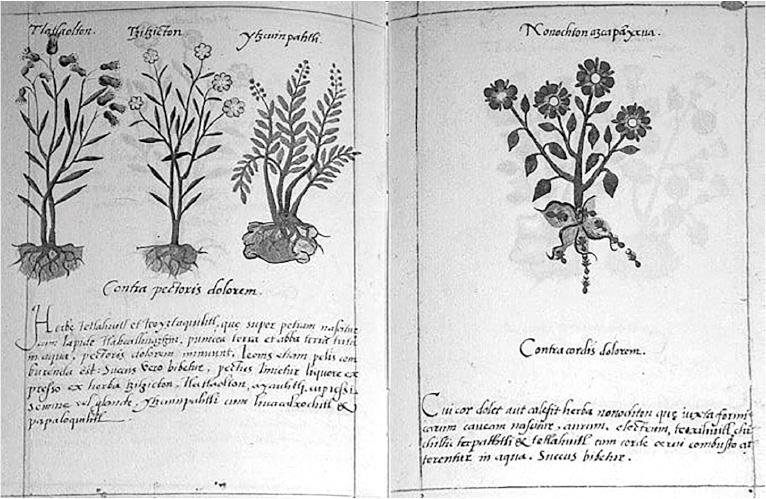 Tlatlaolton. Tzitzicton. Ytzcuinpahtli.
Contra pectoris dolorem.
Herbę Tetlahuitl et teoyztaquilitl, quę super petram nascitur
cum lapide punicea terra et alba terra trita
in aqua, pectoris dolorem minuunt, leonis etiam pelis com
burenda est: Succus vero bibetur, pectus linietur liquore ex
presso ex herba tzitzicton, tlatlaolton, ayauhtli, cupressi
semine vel glande, ytzcuinpahtli cum &
papaloquilitl
Nonochton azcapanyxua.
Contra cordis dolorem.
Cui cor dolet aut calefit herba nonochton quę iuxta formi
carum caueam nascitur, aurum, electrum, teoxihuitl, chi
chiltic tapachtli & tetlahuitl cum corde cerui combusto at
terentur in aqua. Succus bibetur.